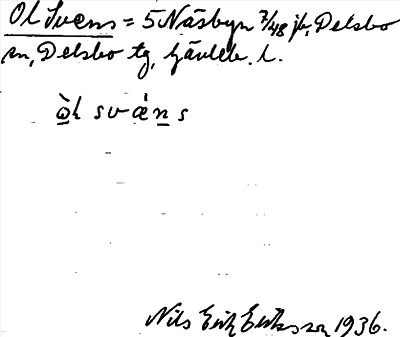 Ol Svens = 5 Näsbyn 7/48 jb, Delsbo
sn, Delsbo tg, Gävleb. l.
ò̱l sváṉs
Nils Erik Eriksson 1936.